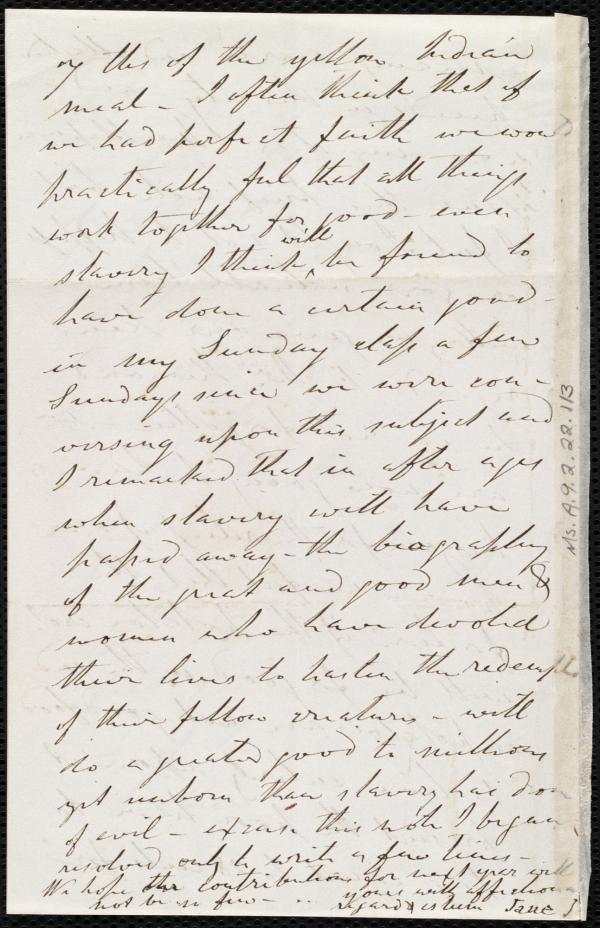 of the yellow Indian
meal - I often think that if
we had perfect faith we wou
practically feel that all things
work together for good - even
slavery I think will be found to
have done a certain good -
in my Sunday class a few
Sundays since we were con-
versing upon this subject and
I remarked that in after ages
when slavery will have
passed away - the biography
of the great and good men &
women who have devoted
their lives to hasten the redempt
of their fellow creatures - will
do a greater good to millions
yet unborn than slavery has don
of evil - excuse this note I began
resolved only to write a few lines -
We hope the contributions for next year will
not be so few - yours with affectiona
regard & esteem Jane J
Ms. A. 9. 2. 22. 113